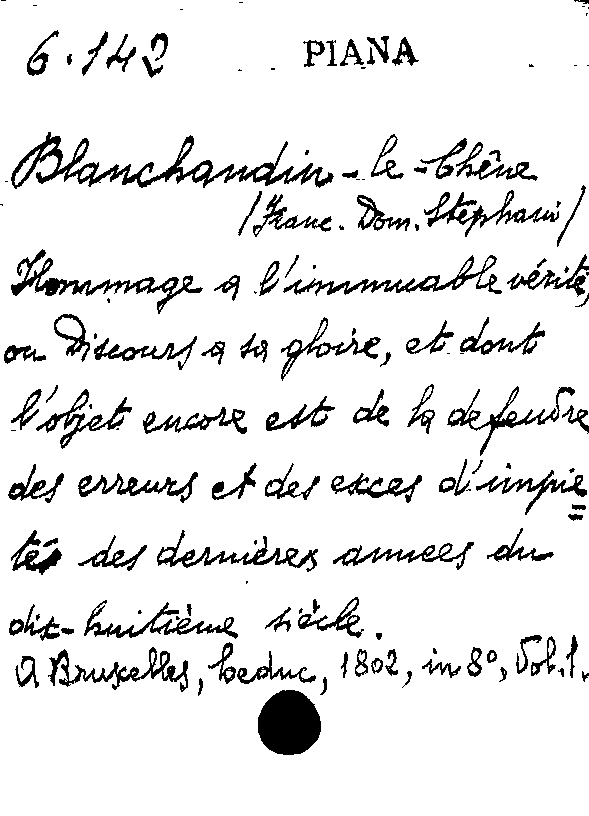 6.142 PIANA
Blanchandin-le-Chêne
(Franc. Dom. Stephani)
Hommage a l'immuable vérité,
ou Discours a sa gloire, et dont
l'objet encore est de la defendre
des erreurs et des exces d'impie=
tés des dernières annees du
dix-huitième siècle.
A Bruxelles, Leduc, 1802, in 8º, Vol. 1.